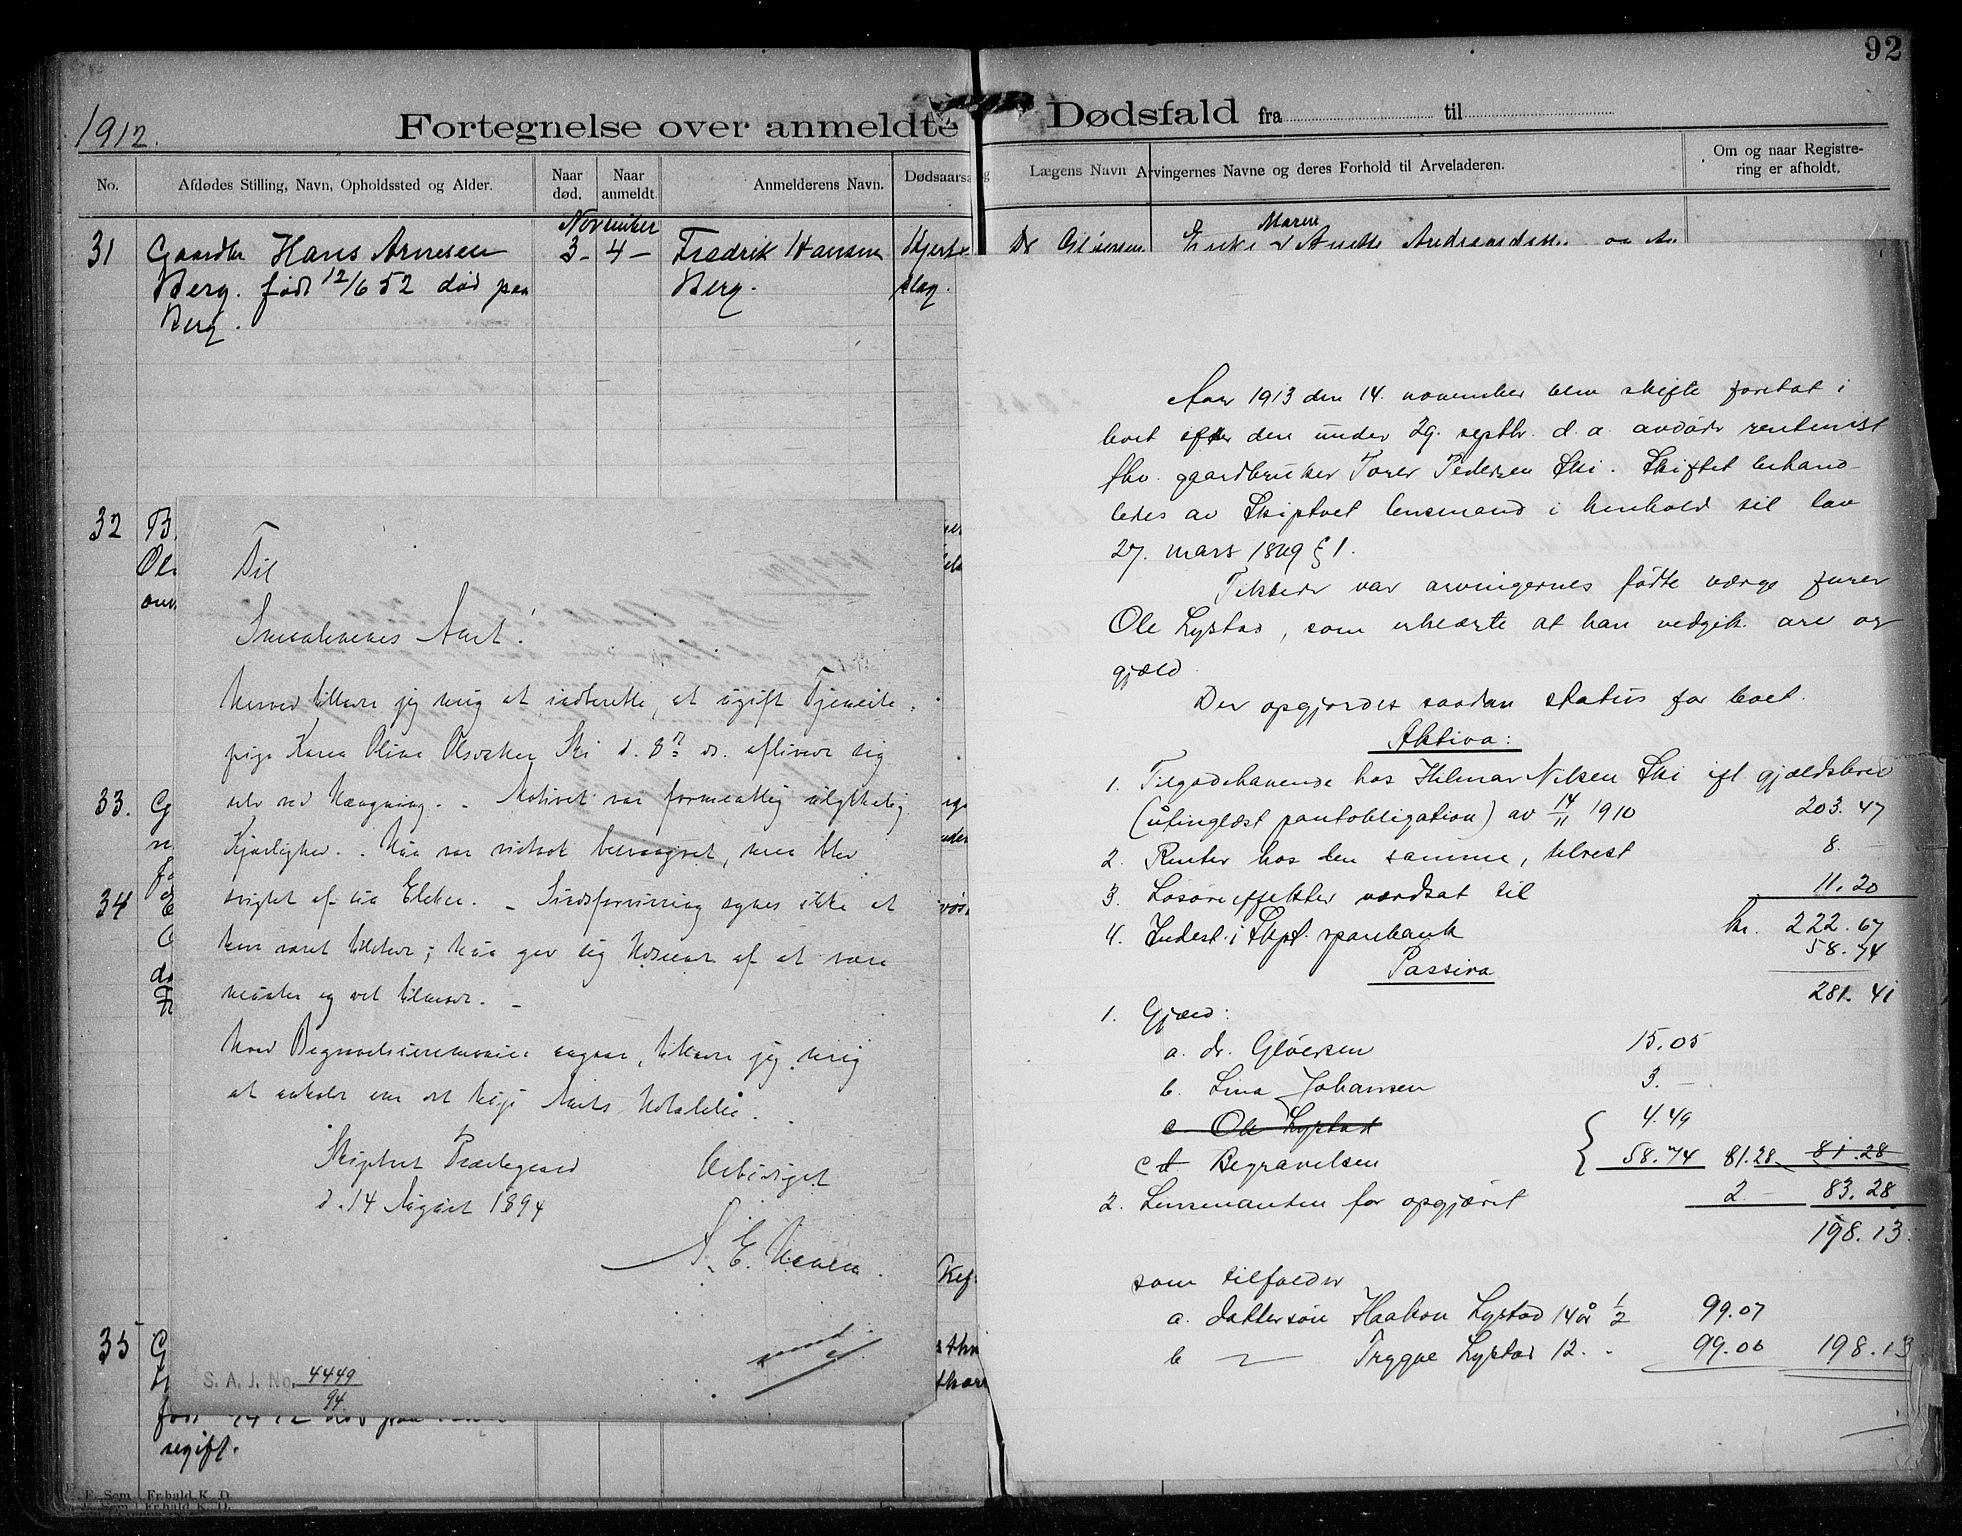 92
1912.
Fortegnelse over anmeldte Dødsfald fra til
No.
Afdødes Stilling, Navn, Opholdssted og Alder.
Naar død.
Naar anmeldt.
Anmelderens Navn.
Dødsaarsag
Lægens Navn
Arvingernes Navne og deres Forhold til Arveladeren.
Om og naar Registrering er afholdt.
November
31 Gaardbr Hans Arnesen 3- 4- Fredrik Hansen Hjerte-
Berg. født 12/6 52 død paa Berg. slag.
Berg.
Maren
Dr Gløersen
32
33.
34
35
ugift.
Til
Lensmandens Amt.
Herved tillader jeg mig at indberette, at ugift Tjeneste-
pige Karen Oline Olsdatter Ski d. 8de ds. aflivede sig
selv ved Hængning. - Motivet var formentlig ulykkelig
Kjærlighed. - Hun var vistnok besvangret, men blev
svigtet af sin Elsker. - Sindsforvirring synes ikke at
have været tilstede; hun gav sig Udseende af at være
munter og vel tilmode. -
Hvad Begravelsesceremonien angaar, tillader jeg mig
at anholde om det høje Amts Udtalelse.
Skiptvet Prestegaard
d. 14 August 1894
Ærbødigst
S. A. J. No. 4449
94
Aar 1913 den 14. november blev skifte foretat i
boet efter den under 29. septbr. d. a. avdøde rentenist
fhv. gaardbruker Torer Pedersen Ski. Skiftet behand-
ledes av Skiptvet lensmand i henhold til lov
27. mars 1869 § 1.
Tilstede var arvingernes fødte verge farer
Ole Lystad, som erklærte at han vedgik arv og
gjæld.
Der opgjordes saadan status for boet:
Aktiva:
1. Tilgodehavende hos Hilmar Nilsen Ski ifl gjældsbrev
(utinglæst pantobligation) av 14/11 1910 203.47
2. Renter hos den samme, tilrest 8. -
3. Løsøreeffekter værdsat til 11.20
kr. 222.67
4. Indest. i Skpt. sparebank 58.74
Passiva 281.41
1. Gjæld:
a. dr. Gløersen 15.05
b. Lina Johansen 3. -
c Ole Lystad 4.49
c d Begravelsen 58.74 81.28 81.28
2. Lensmanden for opgjøret 2 - 83.28
198.13.
som tilfalder
a. dattersøn Haakon Lystad 14 år 1/2 99.07
b - Trygve Lystad 12. - 99.06 198.13